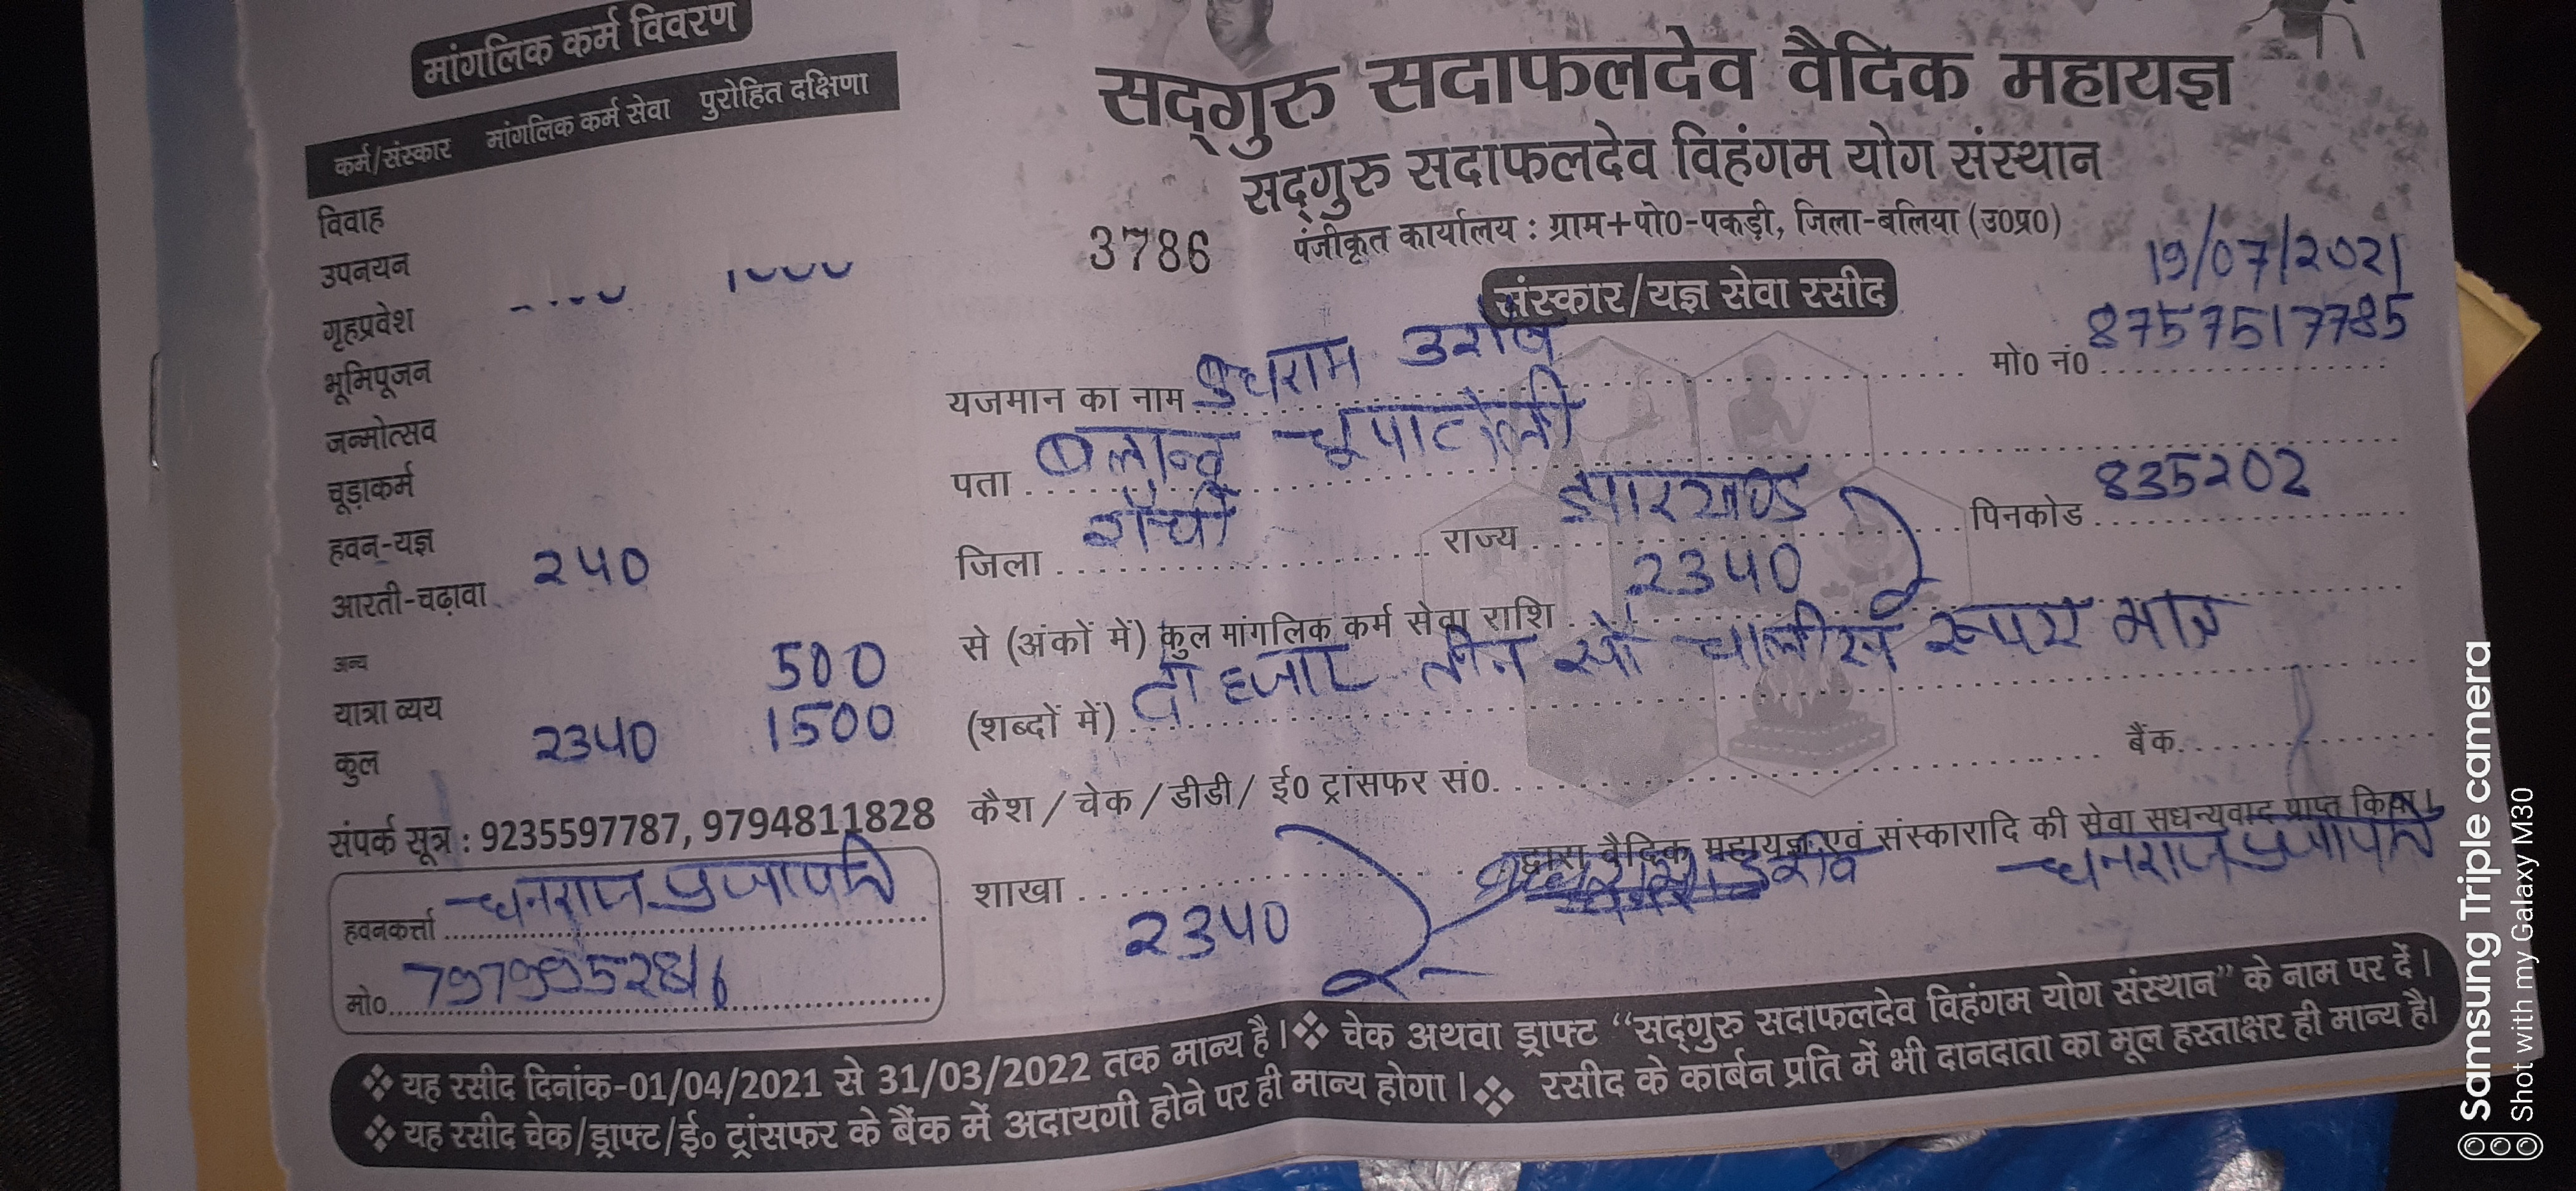 मांगलिक कर्म विवरण
कर्म/संस्कार मांगलिक कर्म सेवा पुरोहित दक्षिणा
विवाह
उपनयन
गृहप्रवेश
भूमिपूजन
जन्मोत्सव
चूड़ाकर्म
हवन-यज्ञ
आरती-चढ़ावा 240
अन्य
यात्रा व्यय 500
कुल 2340 1500
संपर्क सूत्र : 9235597787, 9794811828
हवनकर्त्ता धनराज प्रजापति
मो०
सद्गुरु सदाफलदेव वैदिक महायज्ञ
सद्गुरु सदाफलदेव विहंगम योग संस्थान
3786 पंजीकृत कार्यालय : ग्राम+पो0-पकड़ी, जिला-बलिया (उ0प्र0)
19/07/2021
संस्कार/यज्ञ सेवा रसीद
यजमान का नाम बुधराम उराँव मो0 नं0 8757517785
पता
जिला राँची राज्य झारखण्ड पिनकोड 835202
से (अंकों में) कुल मांगलिक कर्म सेवा राशि 2340
(शब्दों में) दो हजार तीन सौ चालीस रूपए मात्र
कैश / चेक / डीडी / ई0 ट्रांसफर सं0. बैंक
शाखा द्वारा वैदिक महायज्ञ एवं संस्कारादि की सेवा सधन्यवाद प्राप्त किया।
2340 धनराज प्रजापति
❖ यह रसीद दिनांक-01/04/2021 से 31/03/2022 तक मान्य है। ❖ चेक अथवा ड्राफ्ट “सद्गुरु सदाफलदेव विहंगम योग संस्थान” के नाम पर दें।
❖ यह रसीद चेक/ड्राफ्ट/ई० ट्रांसफर के बैंक में अदायगी होने पर ही मान्य होगा। ❖ रसीद के कार्बन प्रति में भी दानदाता का मूल हस्ताक्षर ही मान्य है।
Samsung Triple camera
Shot with my Galaxy M30